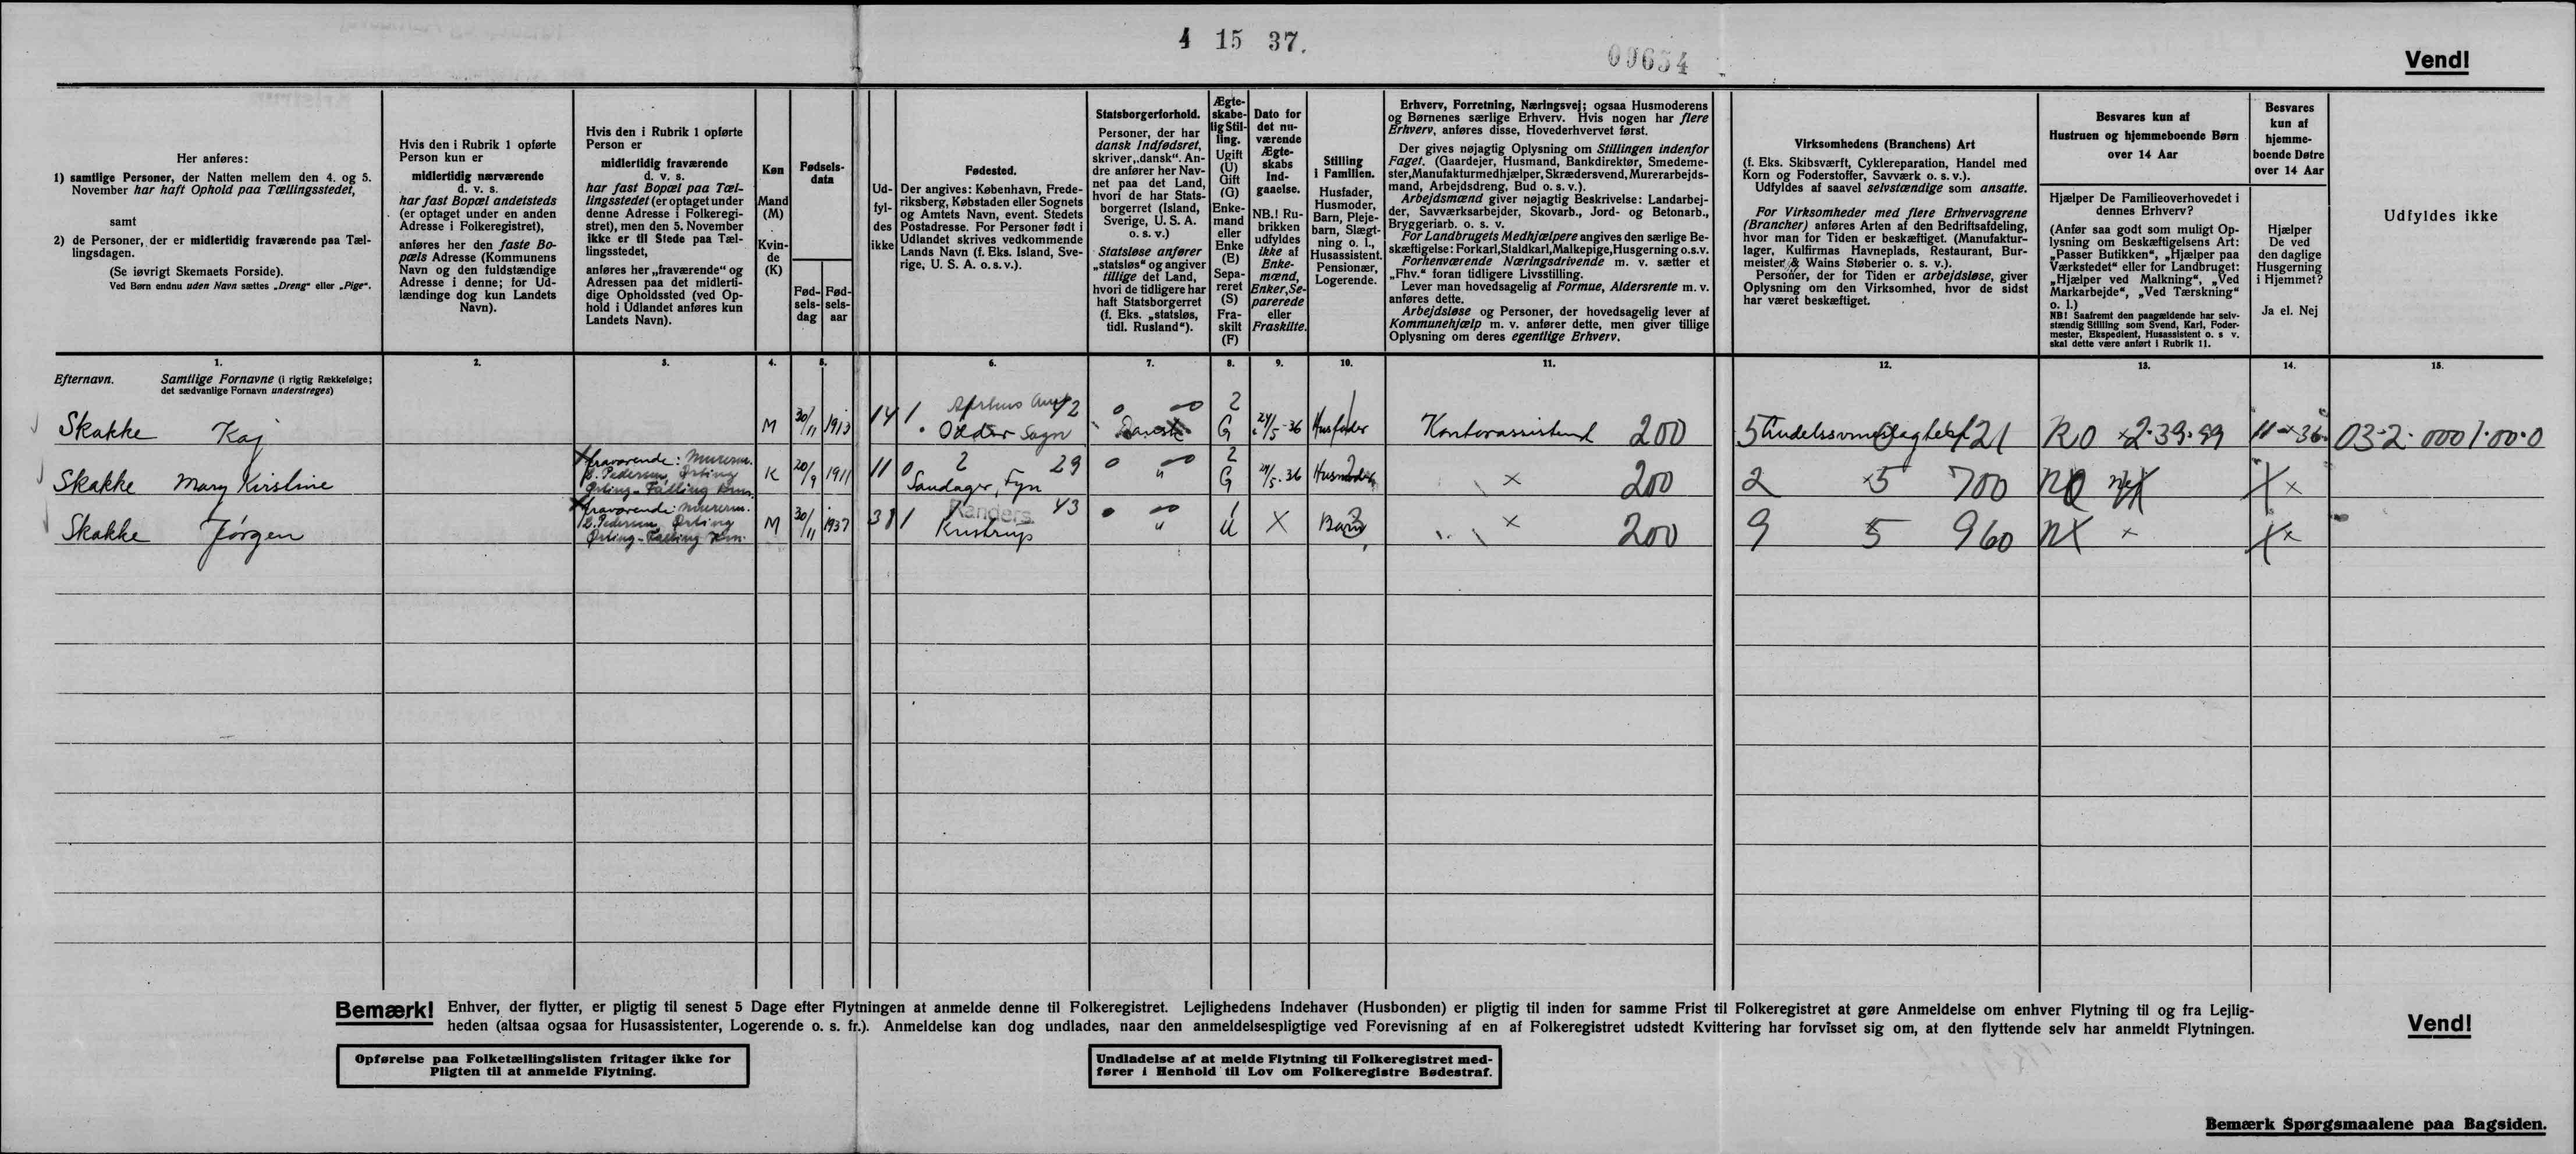 4 15 37.
09654
Vend!
Her anføres:
1) samtlige Personer, der Natten mellem den 4. og 5.
November har haft Ophold paa Tællingsstedet,
samt
2) de Personer, der er midlertidig fraværende paa Tæl-
lingsdagen.
(Se iøvrigt Skemaets Forside).
Ved Børn endnu uden Navn sættes „Dreng" eller „Pige".
Hvis den i Rubrik 1 opførte
Person kun er
midlertidig nærværende
d. v. s.
har fast Bopæl andetsteds
(er optaget under en anden
Adresse i Folkeregistret),
anføres her den faste Bo-
pæls Adresse (Kommunens
Navn og den fuldstændige
Adresse i denne; for Ud-
lændinge dog kun Landets
Navn).
Hvis den i Rubrik 1 opførte
Person er
midlertidig fraværende
d. v. s.
har fast Bopæl paa Tæl-
lingsstedet (er optaget under
denne Adresse i Folkeregi-
stret), men den 5. November
ikke er til Stede paa Tæl-
lingsstedet,
anføres her „fraværende" og
Adressen paa det midlerti-
dige Opholdssted (ved Op-
hold i Udlandet anføres kun
Landets Navn).
Køn
Mand
(M)
Kvin-
de
(K)
Fødsels-
data
Fød-
sels-
dag
Fød-
sels-
aar
Ud-
fyl-
des
ikke
Fødested.
Der angives: København, Frede-
riksberg, Købstaden eller Sognets
og Amtets Navn, event. Stedets
Postadresse. For Personer født i
Udlandet skrives vedkommende
Lands Navn (f. Eks. Island, Sve-
rige, U. S. A. o. s. v.).
Statsborgerforhold.
Personer, der har
dansk Indfødsret,
skriver „dansk". An-
dre anfører her Nav-
net paa det Land,
hvori de har Stats-
borgerret (Island,
Sverige, U. S. A.
o. s. v.)
Statsløse anfører
„statsløs" og angiver
tillige det Land,
hvori de tidligere har
haft Statsborgerret
(f. Eks. „statsløs,
tidl. Rusland").
Ægte-
skabe-
lig Stil-
ling.
Ugift
(U)
Gift
(G)
Enke-
mand
eller
Enke
(E)
Sepa-
reret
(S)
Fra-
skilt
(F)
Dato for
det nu-
værende
Ægte-
skabs
Ind-
gaaelse.
NB.! Ru-
brikken
udfyldes
ikke af
Enke-
mænd,
Enker, Se-
parerede
eller
Fraskilte.
Stilling
i Familien.
Husfader,
Husmoder,
Barn, Pleje-
barn, Slægt-
ning o. l.,
Husassistent,
Pensionær,
Logerende.
Erhverv, Forretning, Næringsvej; ogsaa Husmoderens
og Børnenes særlige Erhverv. Hvis nogen har flere
Erhverv, anføres disse, Hovederhvervet først.
Der gives nøjagtig Oplysning om Stillingen indenfor
Faget. (Gaardejer, Husmand, Bankdirektør, Smedeme-
ster, Manufakturmedhjælper, Skrædersvend, Murerarbejds-
mand, Arbejdsdreng, Bud o. s. v.).
Arbejdsmænd giver nøjagtig Beskrivelse: Landarbej-
der, Savværksarbejder, Skovarb., Jord- og Betonarb.,
Bryggeriarb. o. s. v.
For Landbrugets Medhjælpere angives den særlige Be-
skæftigelse: Forkarl, Staldkarl, Malkepige, Husgerning o.s.v.
Forhenværende Næringsdrivende m. v. sætter et
„Fhv." foran tidligere Livsstilling.
Lever man hovedsagelig af Formue, Aldersrente m. v.
anføres dette.
Arbejdsløse og Personer, der hovedsagelig lever af
Kommunehjælp m. v. anfører dette, men giver tillige
Oplysning om deres egentlige Erhverv.
Virksomhedens (Branchens) Art
(f. Eks. Skibsværft, Cyklereparation, Handel med
Korn og Foderstoffer, Savværk o. s. v.).
Udfyldes af saavel selvstændige som ansatte.
For Virksomheder med flere Erhvervsgrene
(Brancher) anføres Arten af den Bedriftsafdeling,
hvor man for Tiden er beskæftiget. (Manufaktur-
lager, Kulfirmas Havneplads, Restaurant, Bur-
meister & Wains Støberier o. s. v.).
Personer, der for Tiden er arbejdsløse, giver
Oplysning om den Virksomhed, hvor de sidst
har været beskæftiget.
Besvares kun af
Hustruen og hjemmeboende Børn
over 14 Aar
Hjælper De Familieoverhovedet i
dennes Erhverv?
(Anfør saa godt som muligt Op-
lysning om Beskæftigelsens Art:
„Passer Butikken", „Hjælper paa
Værkstedet" eller for Landbruget:
„Hjælper ved Malkning", „Ved
Markarbejde", „Ved Tærskning"
o. l.)
NB! Saafremt den paagældende har selv-
stændig Stilling som Svend, Karl, Foder-
mester, Ekspedient, Husassistent o. s. v.
skal dette være anført i Rubrik 11.
Besvares
kun af
hjemme-
boende Døtre
over 14 Aar
Hjælper
De ved
den daglige
Husgerning
i Hjemmet?
Ja el. Nej
Udfyldes ikke
1. 2. 3. 4. 5. 6. 7. 8. 9. 10. 11. 12. 13. 14. 15.
Efternavn. Samtlige Fornavne (i rigtig Rækkefølge;
det sædvanlige Fornavn understreges)
Aarhus Amt 42
Skakke Kaj M 30/11 1913 14 1. Odder Sogn Dansk 2 G 24/5-36 Husfader Kontorassistent 200 5 Andelssvineslagteri 0 421 R.O x2-39-99 11-36 03-2-0001-00-0
fraværende: Murerm.
P. Pedersen, Ørting
Ørting-Falling Kom.
Skakke Mary Kirstine K 20/9 1911 11 0 2 29 Sandager, Fyn " 2 G 24/5-36 Husmoder x 200 2 x5 700 Nej x
fraværende: Murerm.
P. Pedersen, Ørting
Ørting-Falling Kom.
Randers 43
Skakke Jørgen M 30/11 1937 38 1 Kristrup " U X Barn 3 x 200 9 5 960 x x
Bemærk! Enhver, der flytter, er pligtig til senest 5 Dage efter Flytningen at anmelde denne til Folkeregistret. Lejlighedens Indehaver (Husbonden) er pligtig til inden for samme Frist til Folkeregistret at gøre Anmeldelse om enhver Flytning til og fra Lejlig-
heden (altsaa ogsaa for Husassistenter, Logerende o. s. fr.). Anmeldelse kan dog undlades, naar den anmeldelsespligtige ved Forevisning af en af Folkeregistret udstedt Kvittering har forvisset sig om, at den flyttende selv har anmeldt Flytningen.
Vend!
Opførelse paa Folketællingslisten fritager ikke for
Pligten til at anmelde Flytning.
Undladelse af at melde Flytning til Folkeregistret med-
fører i Henhold til Lov om Folkeregistre Bødestraf.
Bemærk Spørgsmaalene paa Bagsiden.